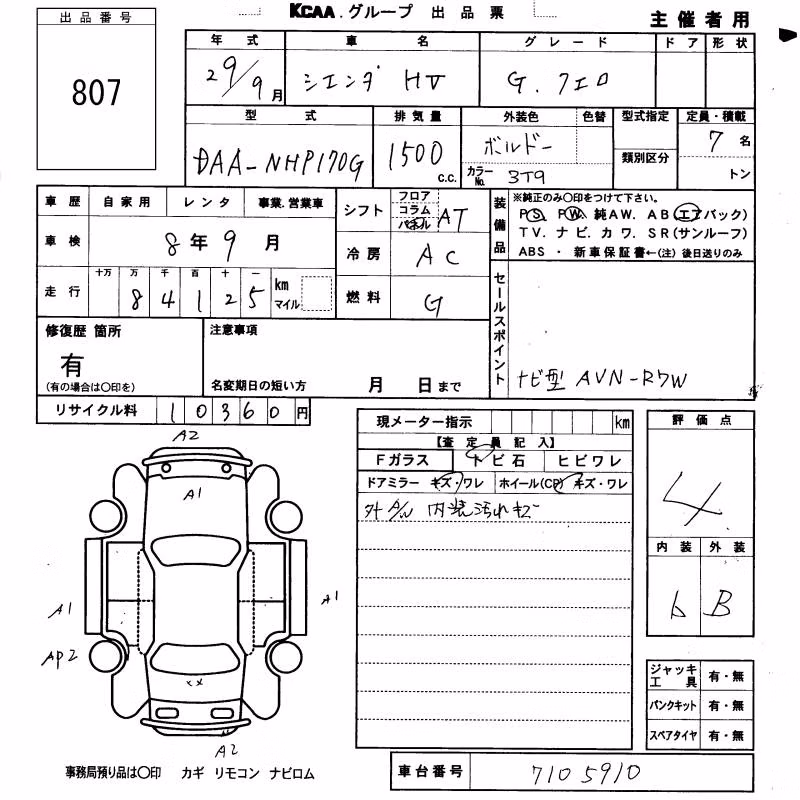 KCAA.グループ 出品票
主催者用
出品番号
807
年式 車名 グレード ドア 形状
29/9月 シエンタ HV G.クエロ
型式 排気量 外装色 色替 型式指定 定員・積載
DAA-NHP170G 1500 c.c. ボルドー 7名
カラーNo. 3T9 類別区分 トン
車歴 自家用 レンタ 事業.営業車
車検 8年9月
走行 十万 万 千 百 十 一
8 4 1 2 5 km マイル
シフト フロア コラム パネル AT
冷房 AC
燃料 G
装備品
※純正のみ○印をつけて下さい。
PS, PW, 純AW. AB(エアバック)
TV. ナビ. カワ. SR(サンルーフ)
ABS ・ 新車保証書←(注) 後日送りのみ
セールスポイント
ナビ型 AVN-R7W
修復歴 箇所
有
(有の場合は○印を)
注意事項
名変期日の短い方 月 日まで
リサイクル料 10360円
現メーター指示 km
【査定員記入】
Fガラス トビ石 ヒビワレ
ドアミラー キズ・ワレ ホイール(CP) キズ・ワレ
外A/W 内装汚れキズ
評価点
4
内装 外装
b B
A2
A1
A1
A1
AP2
××
A2
ジャッキ工具 有・無
パンクキット 有・無
スペアタイヤ 有・無
事務局預り品は○印 カギ リモコン ナビロム
車台番号 7105910